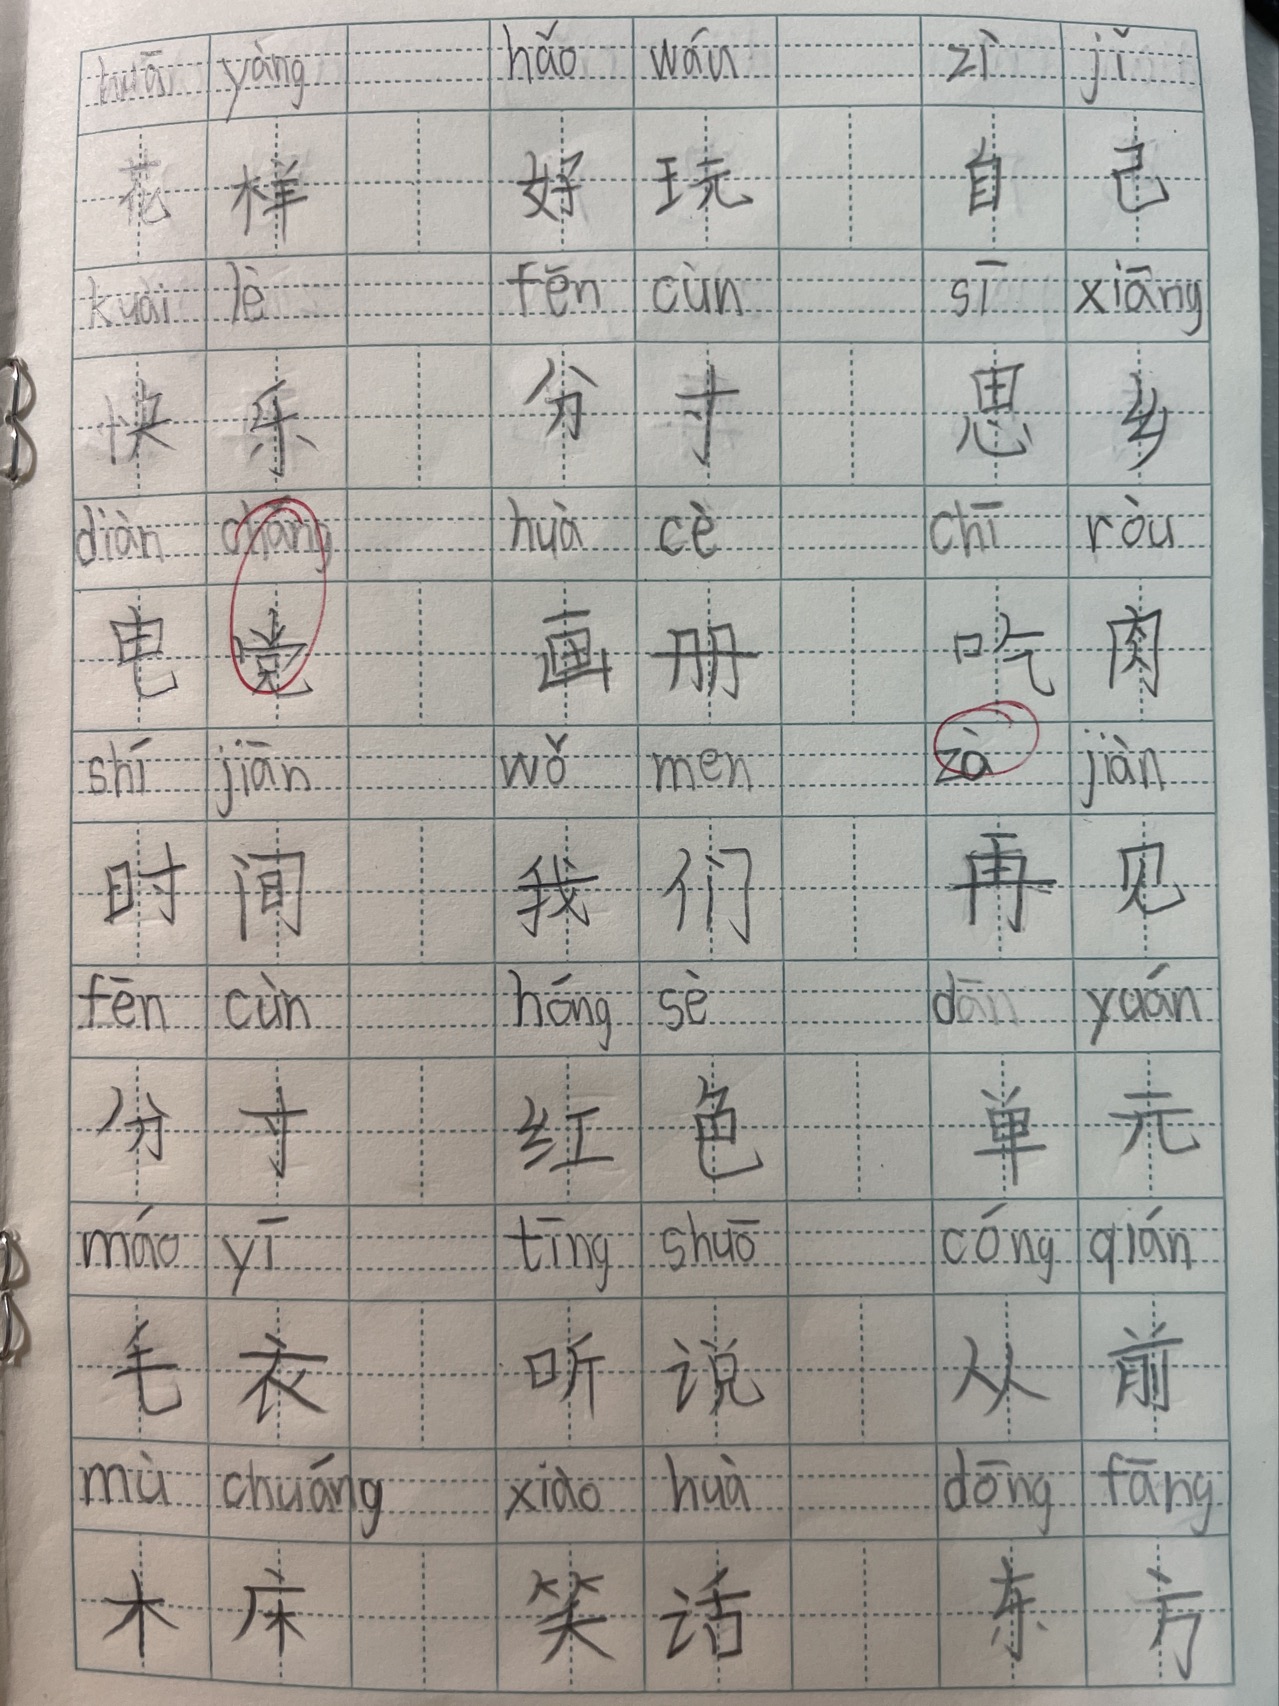 huā yàng hǎo wán zì jǐ
花 样 好 玩 自 己
kuài lè fēn cùn sī xiāng
快 乐 分 寸 思 乡
diàn huà cè chī ròu
电 画 册 吃 肉
shí jiān wǒ men zà jiàn
时 间 我 们 再 见
fēn cùn hóng sè dān yuán
分 寸 红 色 单 元
máo yī tīng shuō cóng qián
毛 衣 听 说 从 前
mù chuáng xiào huà dōng fāng
木 床 笑 话 东 方